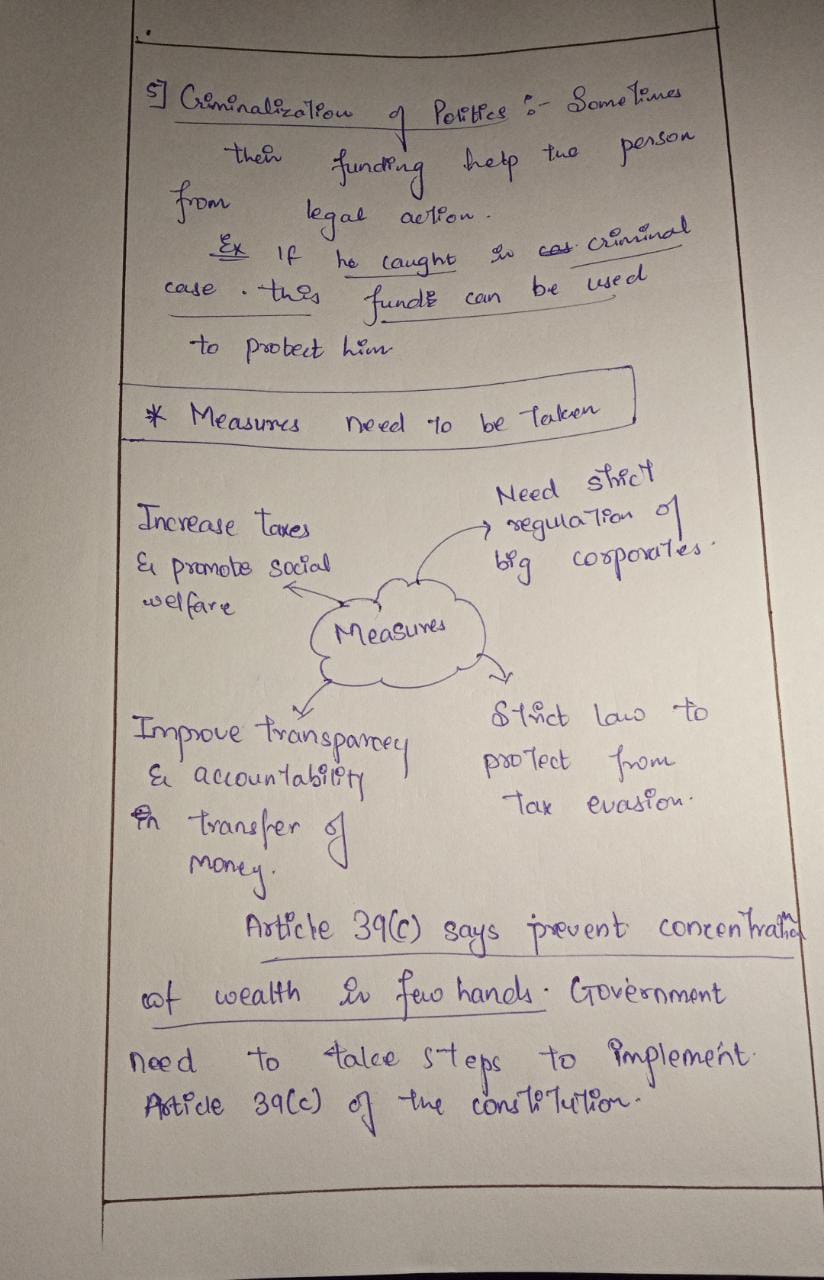 5] Criminalization of Politics :- Sometimes
their funding help the person
from legal action.
Ex If he caught in criminal
case. this funds can be used
to protect him
* Measures need to be taken
Increase taxes
& promote social
welfare
Need strict
regulation of
big corporates.
Measures
Improve transparcey
& accountability
in transfer of
money.
Strict law to
protect from
tax evasion.
Article 39(c) says prevent concentration
of wealth in few hands. Government
need to take steps to implement
Article 39(c) of the constitution.